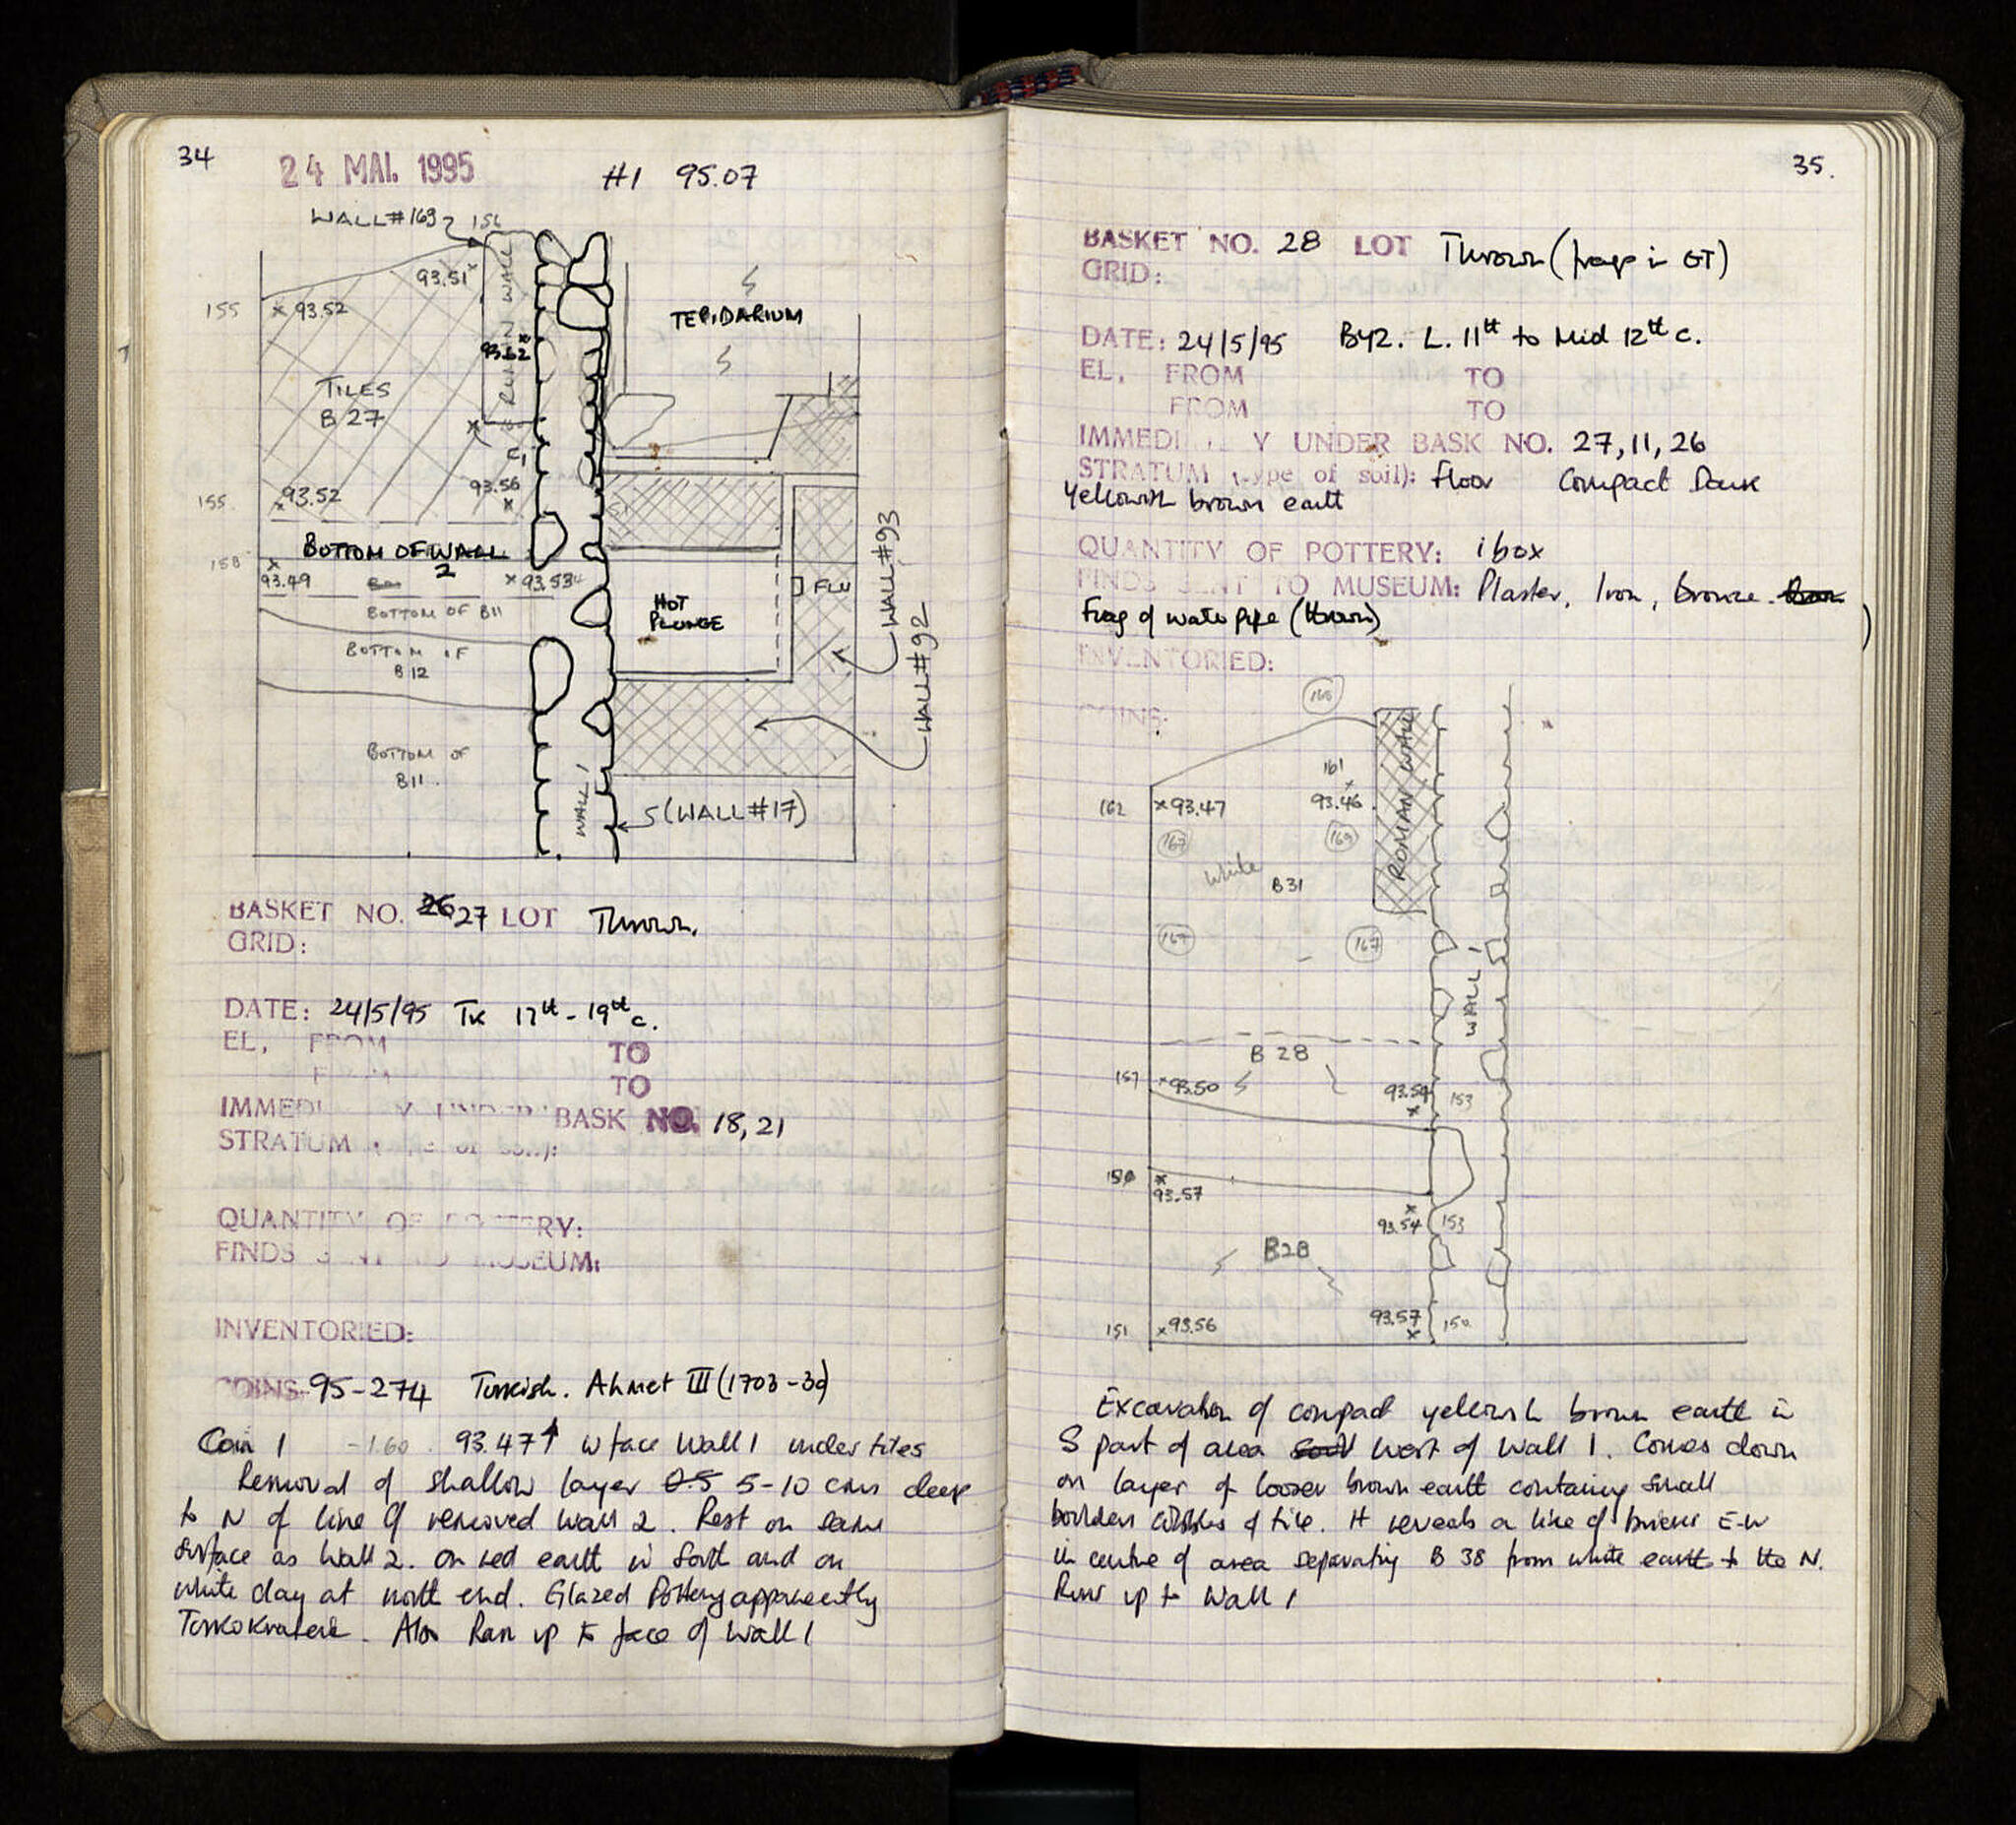 34
24 MAI. 1995
#1 95.07
WALL #169
155
93.51
93.52
ROMAN WALL
93.62
TEPIDARIUM
TILES
B 27
C1
93.56
155
93.52
BOTTOM OF WALL
2
158
93.49
93.53
BOTTOM OF B11
BOTTOM OF
B12
HOT
PLUNGE
FLU
WALL #93
WALL #92
BOTTOM OF
B11
WALL 1
S (WALL #17)
BASKET NO. 26 27 LOT Thrown.
GRID:
DATE: 24/5/95 Tk 17th - 19th c.
EL, FROM TO
TO
IMMEDI Y UNDER BASK NO. 18, 21
STRATUM
QUANTITY OF POTTERY:
FINDS SENT TO MUSEUM:
INVENTORIED:
COINS: 95-274 Turkish. Ahmet III (1703-30)
Coin 1 -1.60 93.47 W face Wall 1 under tiles
Removal of shallow layer 0.5 5-10 cms deep
to N of line of removed wall 2. Rest on same
surface as Wall 2. On red earth in South and on
white clay at north end. Glazed Pottery apparently
Turkokratia. Also Ran up to face of Wall 1
35.
BASKET NO. 28 LOT Thrown (frags in GT)
GRID:
DATE: 24/5/95 Byz. L. 11th to Mid 12th c.
EL, FROM TO
FROM TO
IMMEDI Y UNDER BASK NO. 27, 11, 26
STRATUM (type of soil): Floor Compact Dark
yellowish brown earth
QUANTITY OF POTTERY: 1 box
FINDS SENT TO MUSEUM: Plaster, Iron, bronze.
Frag of water pipe (thrown)
INVENTORIED:
COINS:
160
ROMAN WALL
161
162
93.47
93.46
167
169
White
B31
167
167
WALL 1
B 28
157
93.50
93.54
153
93.57
93.54
153
B28
93.57
151
93.56
150
Excavation of compact yellowish brown earth in
S part of area South West of Wall 1. Comes down
on layer of looser brown earth containing small
boulders of tile. It reveals a line of bricks E-W
in centre of area separating B 38 from white earth to the N.
Runs up to Wall 1